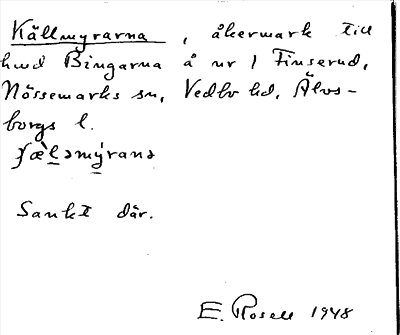 Källmyrarna, åkermark till
hmd Bingarna å nr 1 Finserud,
Nössemarks sn, Vedbo hd, Älvs-
borgs l.
Sankt där.
E. Rosell 1948